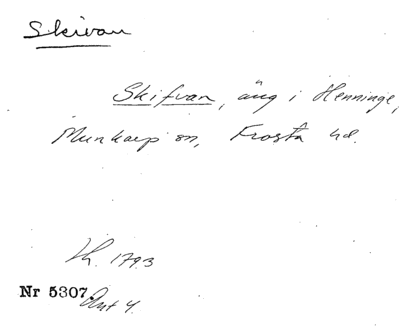 Skivan
Skifvan, äng i Henninge,
Munkarp sn, Frosta hd.
Lh. 1793
Nr 5307 Akt 4